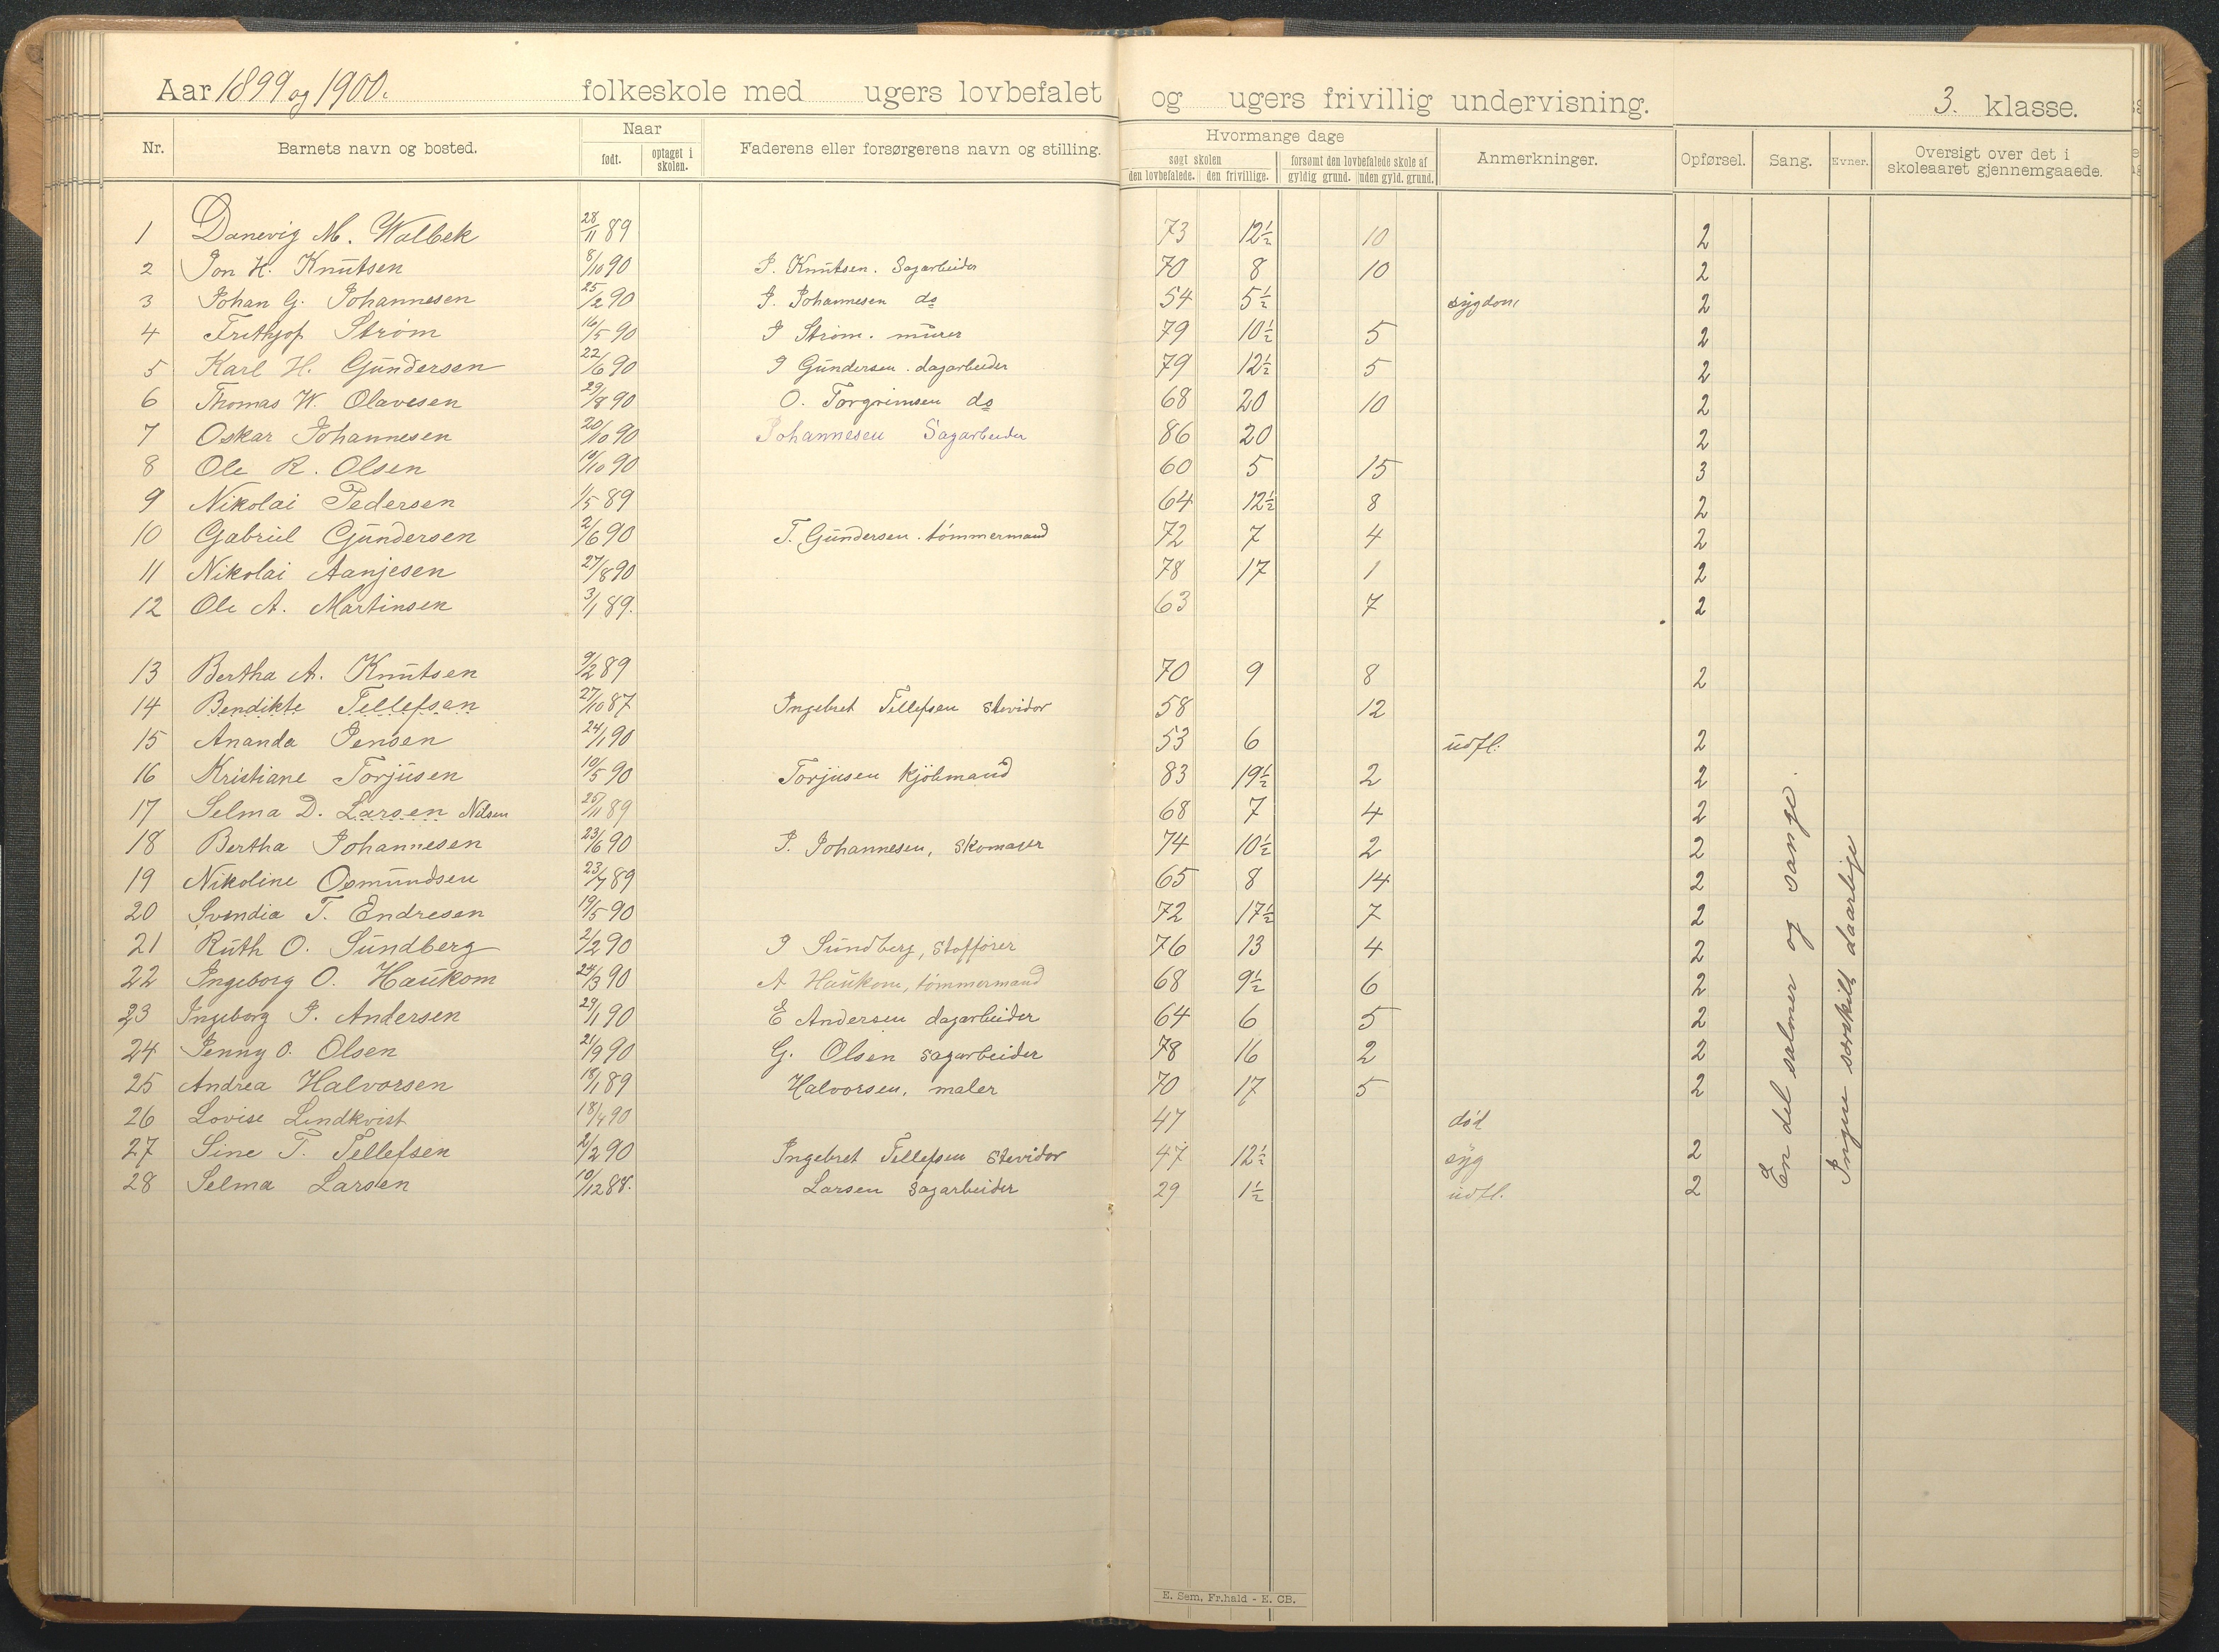 Aar 1899 og 1900. folkeskole med ugers lovbefalet og ugers frivillig undervisning. 3. klasse.
Nr. Barnets navn og bosted. Naar født. optaget i skolen. Faderens eller forsørgerens navn og stilling. Hvormange dage søgt skolen den lovbefalede. den frivillige. forsømt den lovbefalede skole af gyldig grund. uden gyld. grund. Anmerkninger. Opførsel. Sang. Evner. Oversigt over det i skoleaaret gjennemgaaede.
1 Danevig M. Walbek 28/11 89 73 12½ 10 2
2 Jon H. Knutsen 8/10 90 J. Knutsen. Sagarbeider 70 8 10 2
3 Johan G. Johannesen 25/2 90 J. Johannesen do 54 5½ sygdom 2
4 Frithjof Strøm 16/5 90 J Strøm. murer 79 10½ 5 2
5 Karl H. Gundersen 22/6 90 J Gundersen. dagarbeider 79 12½ 5 2
6 Thomas W. Olavesen 29/8 90 O. Torgrimsen do 68 20 10 2
7 Oskar Johannesen 20/10 90 Johannesen Sagarbeider 86 20 2
8 Ole R. Olsen 10/10 90 60 5 15 3
9 Nikolai Pedersen 1/5 89 64 12½ 8 2
10 Gabriel Gundersen 2/6 90 T. Gundersen. tømmermand 72 7 4 2
11 Nikolai Aanjesen 27/8 90 78 17 1 2
12 Ole A. Martinsen 3/1 89. 63 7 2
13 Bertha A. Knutsen 9/2 89 70 9 8 2
14 Bendikte Tellefsen 27/10 87 Ingebret Tellefsen stevidor 58 12
15 Ananda Jensen 24/1 90 53 6 udfl. 2
16 Kristiane Torjusen 10/5 90 Torjusen kjöbmand 83 19½ 2 2
17 Selma D. Larsen Nilsen 25/11 89 68 7 4 2
18 Bertha Johannesen 23/6 90 J. Johannesen, skomager 74 10½ 2 2
19 Nikoline Osmundsen 23/7 89 65 8 14 2
20 Svendia T. Endresen 19/5 90 72 17½ 7 2
21 Ruth O. Sundberg 2/2 90 J Sundberg, stafförer 76 13 4 2
22 Ingeborg O. Haukom 24/3 90 A Haukom, tömmermand 68 9½ 6 2
23 Ingeborg J. Andersen 29/1 90 E Andersen dagarbeider 64 6 5 2
24 Jenny O. Olsen 21/9 90 G. Olsen sagarbeider 78 16 2 2
25 Andrea Halvorsen 18/1 89 Halvorsen, maler 70 17 5 2
26 Lovise Lindkvist 18/4 90 47 död
27 Sine T. Tellefsen 2/2 90 Ingebret Tellefsen stevidor 47 12½ syg 2
28 Selma Larsen 10/12 88. Larsen sagarbeider 29 1½ udfl. 2
En del salmer og sange.
Ingen særskilt daarlige
E. Sem, Fr.hald - E. CB.